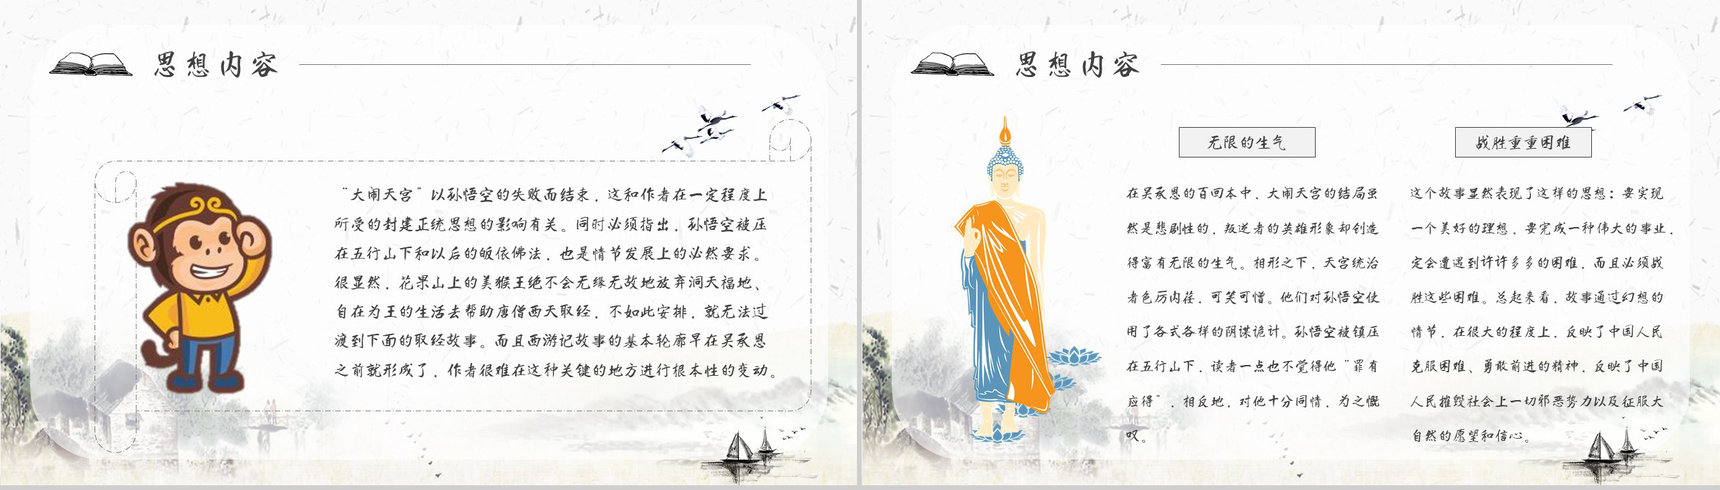 思想内容
“大闹天宫”以孙悟空的失败而结束，这和作者在一定程度上
所受的封建正统思想的影响有关。同时必须指出，孙悟空被压
在五行山下和以后的皈依佛法，也是情节发展上的必然要求。
很显然，花果山上的美猴王绝不会无缘无故地放弃洞天福地、
自在为王的生活去帮助唐僧西天取经，不如此安排，就无法过
渡到下面的取经故事。而且西游记故事的基本轮廓早在吴承恩
之前就形成了，作者很难在这种关键的地方进行根本性的变动。
思想内容
无限的生气
在吴承恩的百回本中，大闹天宫的结局虽
然是悲剧性的，叛逆者的英雄形象却创造
得富有无限的生气。相形之下，天宫统治
者色厉内荏，可笑可憎。他们对孙悟空使
用了各式各样的阴谋诡计。孙悟空被镇压
在五行山下，读者一点也不觉得他“罪有
应得”，相反地，对他十分同情，为之慨
叹。
战胜重重困难
这个故事显然表现了这样的思想：要实现
一个美好的理想，要完成一种伟大的事业，
定会遭遇到许许多多的困难，而且必须战
胜这些困难。总起来看，故事通过幻想的
情节，在很大的程度上，反映了中国人民
克服困难、勇敢前进的精神，反映了中国
人民摧毁社会上一切邪恶势力以及征服大
自然的愿望和信心。